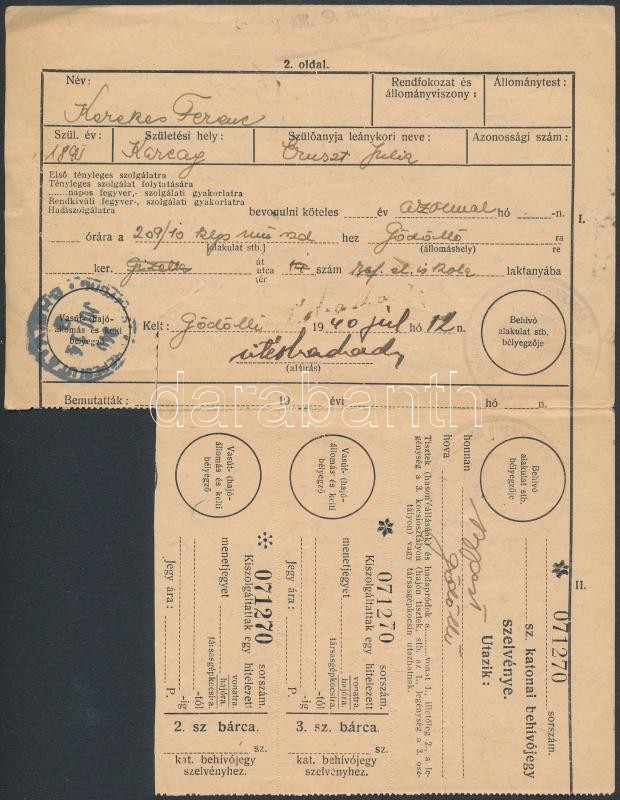 2. oldal.
Név:
Rendfokozat és állományviszony:
Állománytest:
Kerekes Ferenc
Szül. év:
Születési hely:
Szülőanyja leánykori neve:
Azonossági szám:
Karcag
Julia
Első tényleges szolgálatra
Tényleges szolgálat folytatására
......napos fegyver,- szolgálati gyakorlatra
Rendkívüli fegyver,- szolgálati gyakorlatra
Hadiszolgálatra
bevonulni köteles
év azonnal hó -n.
I.
órára a 209/10 hez Gödöllő ra
[alakulat stb.] (állomáshely) re
ker. Gizella út utca tér 17 szám Ref. el. iskola laktanyába
Vasút- (hajó-
állomás és kelti
bélyegző
Kelt: Gödöllő 1940 júl hó 12 n.
(aláírás)
Behívó
alakulat stb.
bélyegzője
darabanth
Bemutatták: 19 évi hó n.
Vasút- (hajó-
állomás és kelti
bélyegző
Vasút- (hajó-
állomás és kelti
bélyegző
Behívó
alakulat stb.
bélyegzője
II.
* 071270 sorszám.
sz. katonai behívójegy
szelvénye.
Utazik:
honnan Bpest
hova Gödöllő
Tisztek (hasonállásúak) és hadapródok a vonat 1., illetőleg 2., a le-
génység a 3. kocsiosztályon (hajón tisztek, stb. az 1., legénység a 3. osz-
tályon) vagy társasgépkocsin utazhatnak.
* 071270 sorszám.
Kiszolgáltattak egy hitelezett
menetjegyet vonatra.
hajóra.
társasgépkocsira.
-tól -ig
Jegy ára: P.
3. sz. bárca.
sz.
kat. behívójegy
szelvényhez.
* 071270 sorszám.
Kiszolgáltattak egy hitelezett
menetjegyet vonatra.
hajóra.
társasgépkocsira.
-tól -ig
Jegy ára: P.
2. sz bárca.
sz.
kat. behívójegy
szelvényhez.